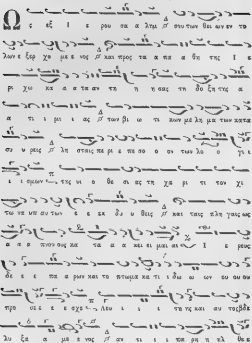 Ω ς εξ Ι ε ρου σα λημ σου των θει ων εν το
λων ε ξερ χο με ε νος και προς τα α πα α θη της Ι ε
ρι χω κα α α τα αν τη η η σας τη δο ξη της α
α τι ι ρι ι ας των βι ω τι κων με λη μα των κατα
συ υ ρεις λη σταις πε ρι ε πε σο ο ον των λο ο γι
ι ι σμων της υι ο θε σι ας τη χα ρι τι τον χι
τω να υπ αυ των ε ε εκ δυ υ θεις και ταις πλη γαις ως
α α α πνους κα τα α α κει ει μαι Ι ε ρευς
δε ε ε πα α ρων και το πτωμα κα τι δω ω ων ου ου ου
προ σε ε ε σχε Λευ ι ι ι της και αυ τος βδε
λυ ξα α με ε νος αν τι ι ι πα ρη η ηλ θε